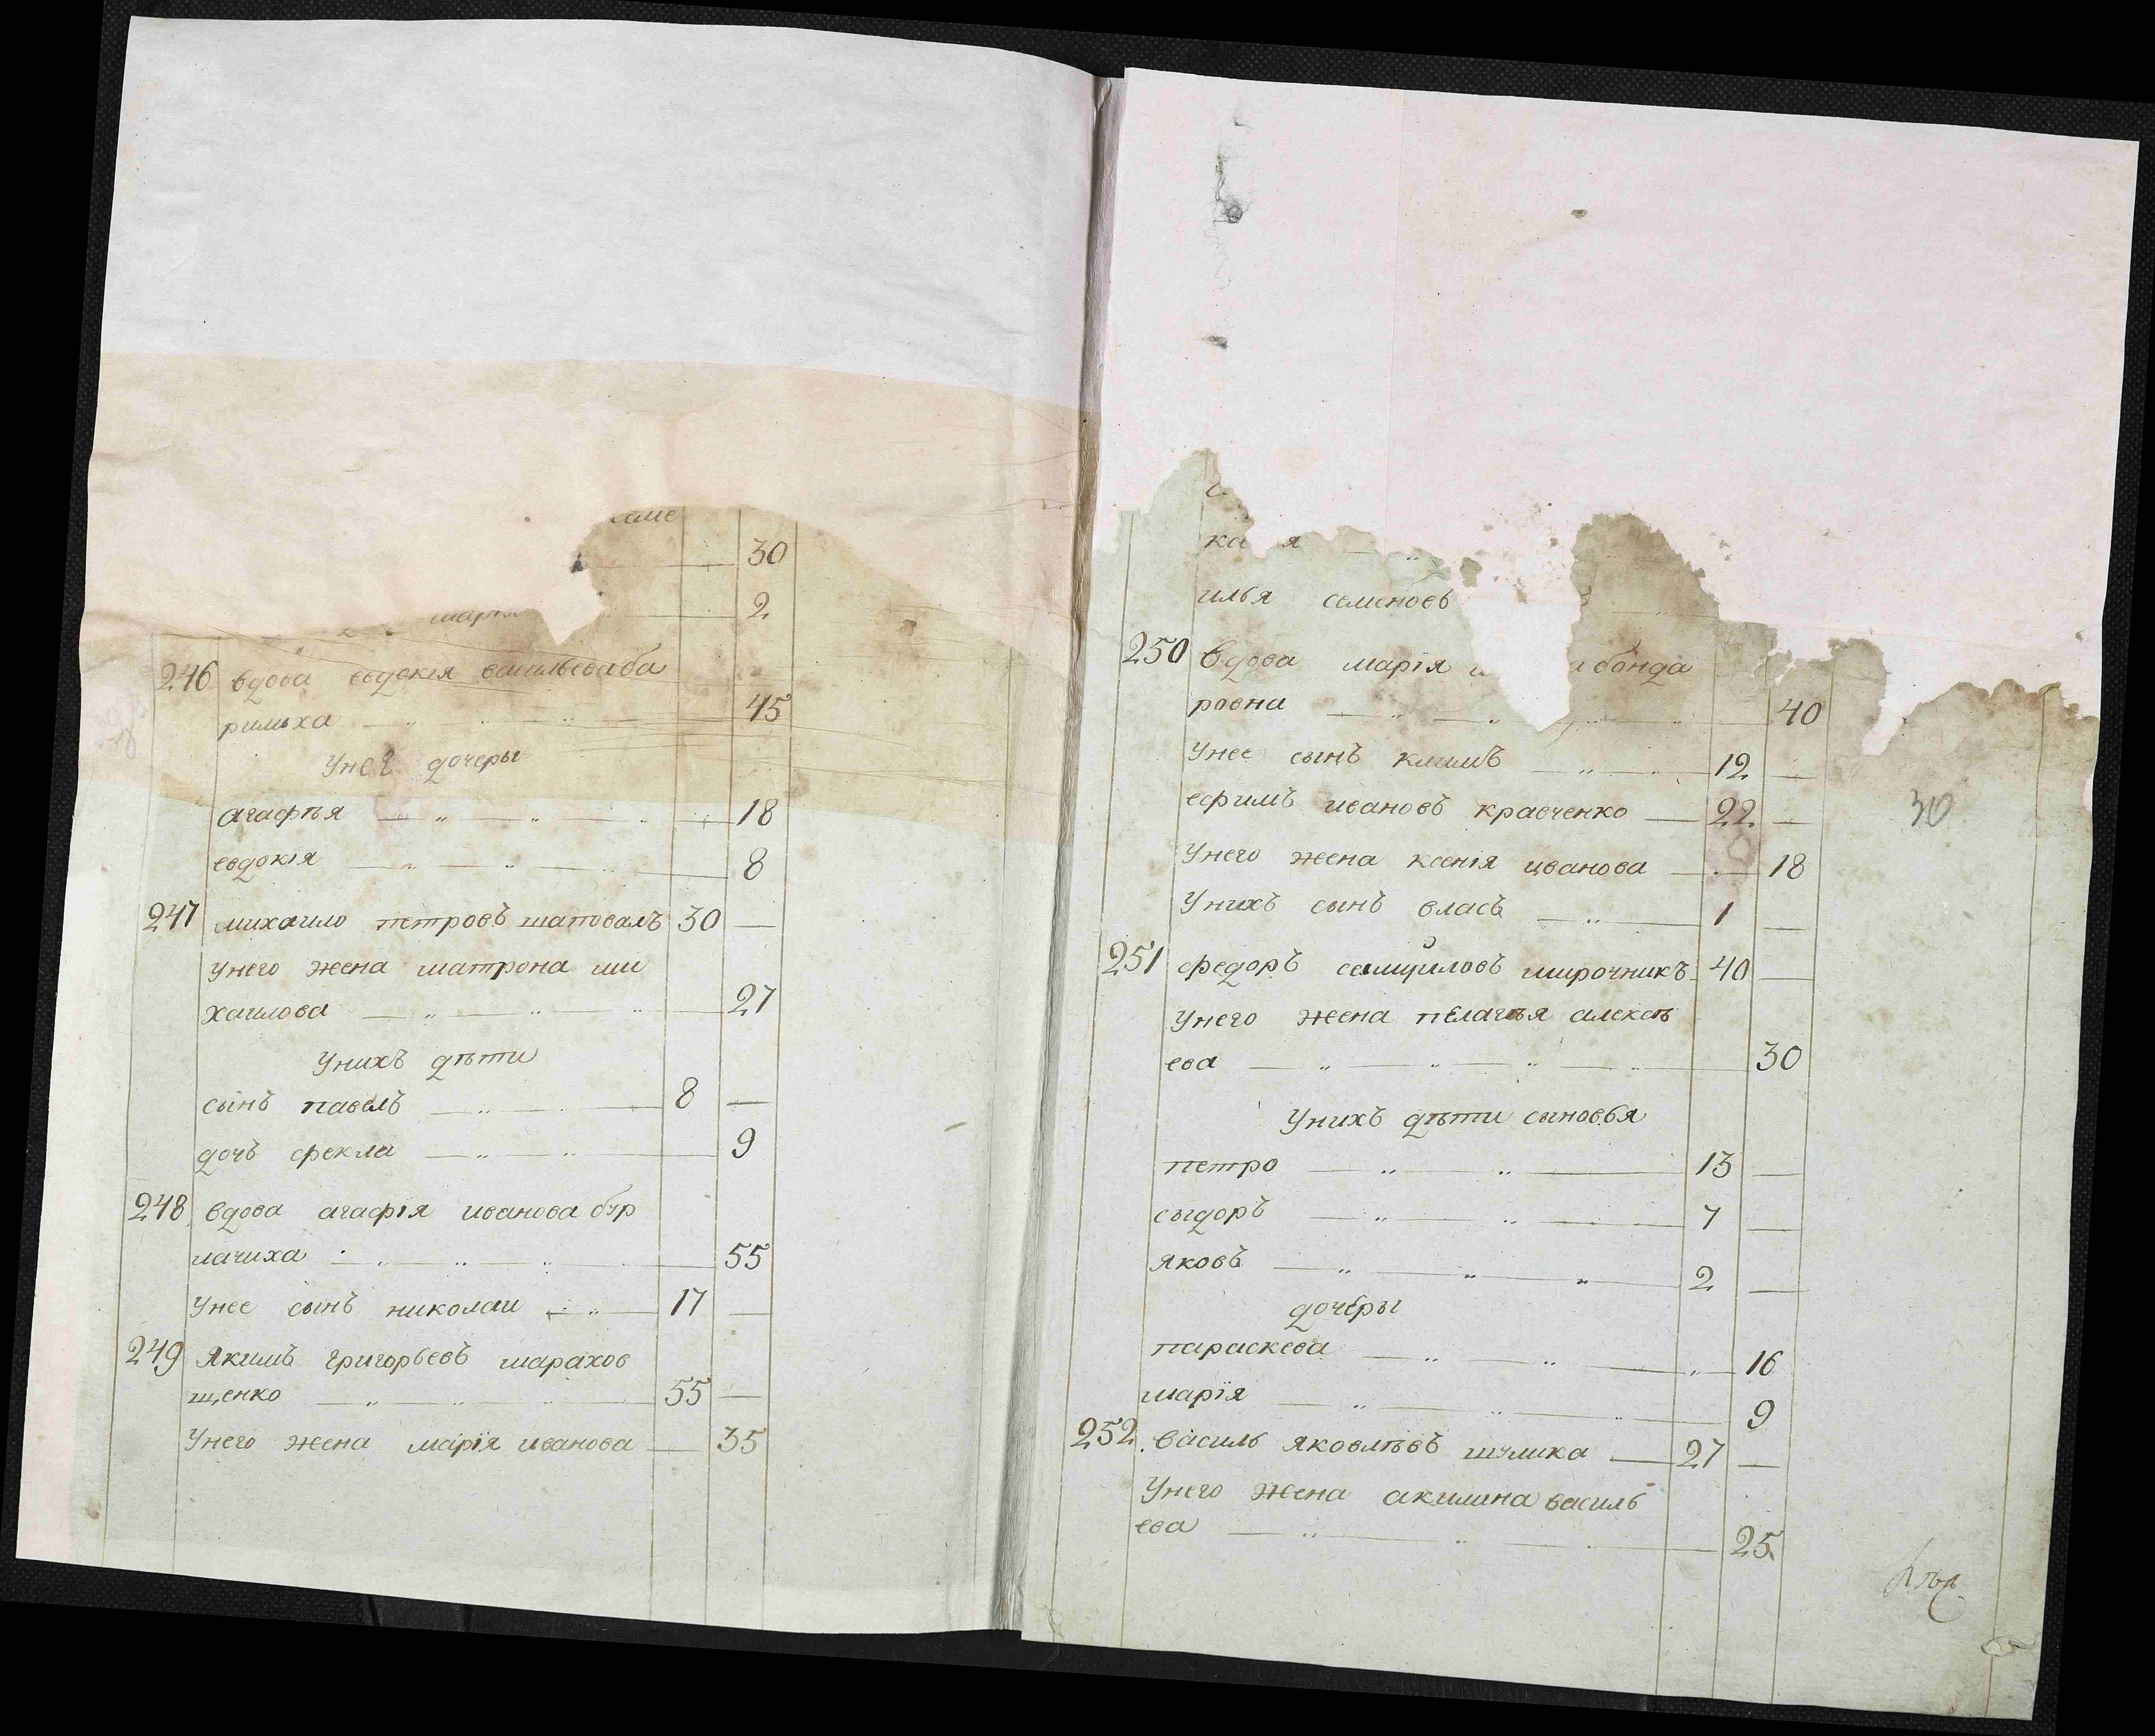 30
марія 2
246 вдова евдокія васильева ба
рилиха 45
Унея дочеры
агафья 18
евдокія 8
247 михаило петровъ шаповалъ 30
Унего жена матрона ми
хаилова 27
Унихъ дѣти
сынъ павелъ 8
дочь фекла 9
248 вдова агафія иванова бур
лачиха 55
Унее сынъ николаи 17
249 Якимъ григорьевъ шарахов
щенко 55
Унего жена марія иванова 35
илья семеновъ
250 Вдова марія бонда
ровна 40
Унее сынъ климъ 12
ефимъ ивановъ кравченко 22
30
Унего жена ксенія иванова 18
Унихъ сынъ власъ 1
251 федоръ самуиловъ мирочникъ 40
Унего жена пелагѣя алексѣ
ева 30
Унихъ дѣти сыновья
петро 13
сыдоръ 7
яковъ 2
дочеры
параскева 16
марія 9
252 василь яковлѣвъ шулика 27
Унего жена акилина василь
ева 25